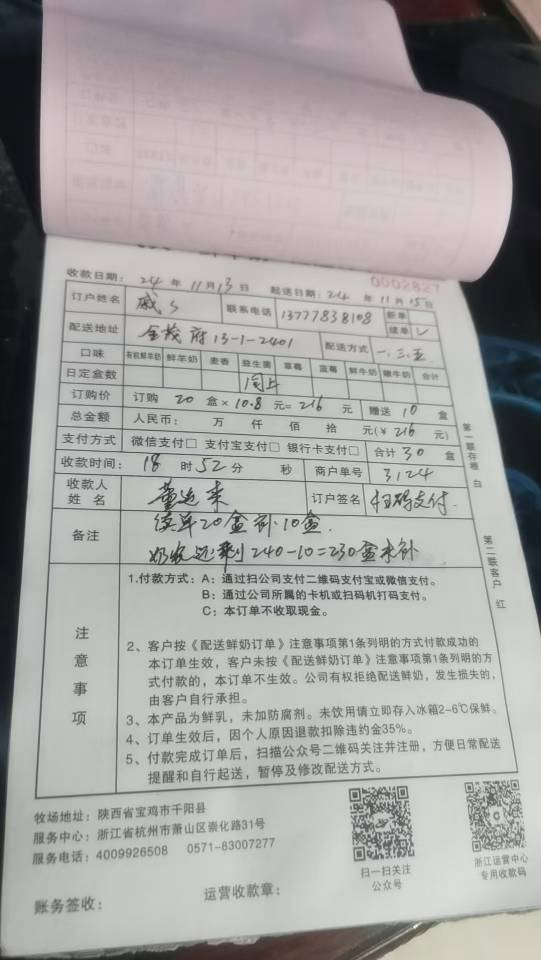 0002827
收款日期: 24 年 11 月 13 日 起送日期: 24 年 11 月 15 日
订户姓名 联系电话 13777838108 新单 续单 ✓
配送地址 金茂府13-1-2401 配送方式 一.三.五
口味 有机鲜羊奶 鲜羊奶 麦香 益生菌 草莓 蓝莓 鲜牛奶 嫩牛奶 合计
日定盒数 同上
订购价 订购 20 盒×10.8元=216 元 赠送 10 盒
总金额 人民币: 万 仟 佰 拾 元(¥216 元)
支付方式 微信支付□ 支付宝支付□ 银行卡支付□ 合计 30 盒
收款时间: 18 时 52 分 秒 商户单号 3124
收款人姓名 董运来 订户签名 扫码支付.
备注 续单20盒补10盒.
还剩240-10=230盒未补
第一联存根 白
第二联客户 红
注意事项
1.付款方式: A: 通过扫公司支付二维码支付宝或微信支付。
B: 通过公司所属的卡机或扫码机打码支付。
C: 本订单不收取现金。
2、客户按《配送鲜奶订单》注意事项第1条列明的方式付款成功的
本订单生效，客户未按《配送鲜奶订单》注意事项第1条列明的方
式付款的，本订单不生效。公司有权拒绝配送鲜奶，发生损失的，
由客户自行承担。
3、本产品为鲜乳，未加防腐剂。未饮用请立即存入冰箱2-6℃保鲜。
4、订单生效后，因个人原因退款扣除违约金35%。
5、付款完成订单后，扫描公众号二维码关注并注册，方便日常配送
提醒和自行起送，暂停及修改配送方式。
牧场地址: 陕西省宝鸡市千阳县
服务中心: 浙江省杭州市萧山区崇化路31号
服务电话: 4009926508 0571-83007277
扫一扫关注
公众号
浙江运营中心
专用收款码
账务签收: 运营收款章: